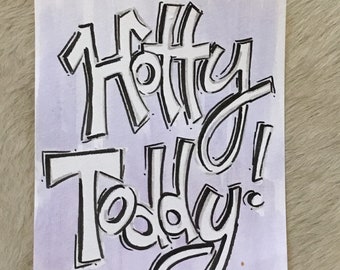 Hotty
Toddy!